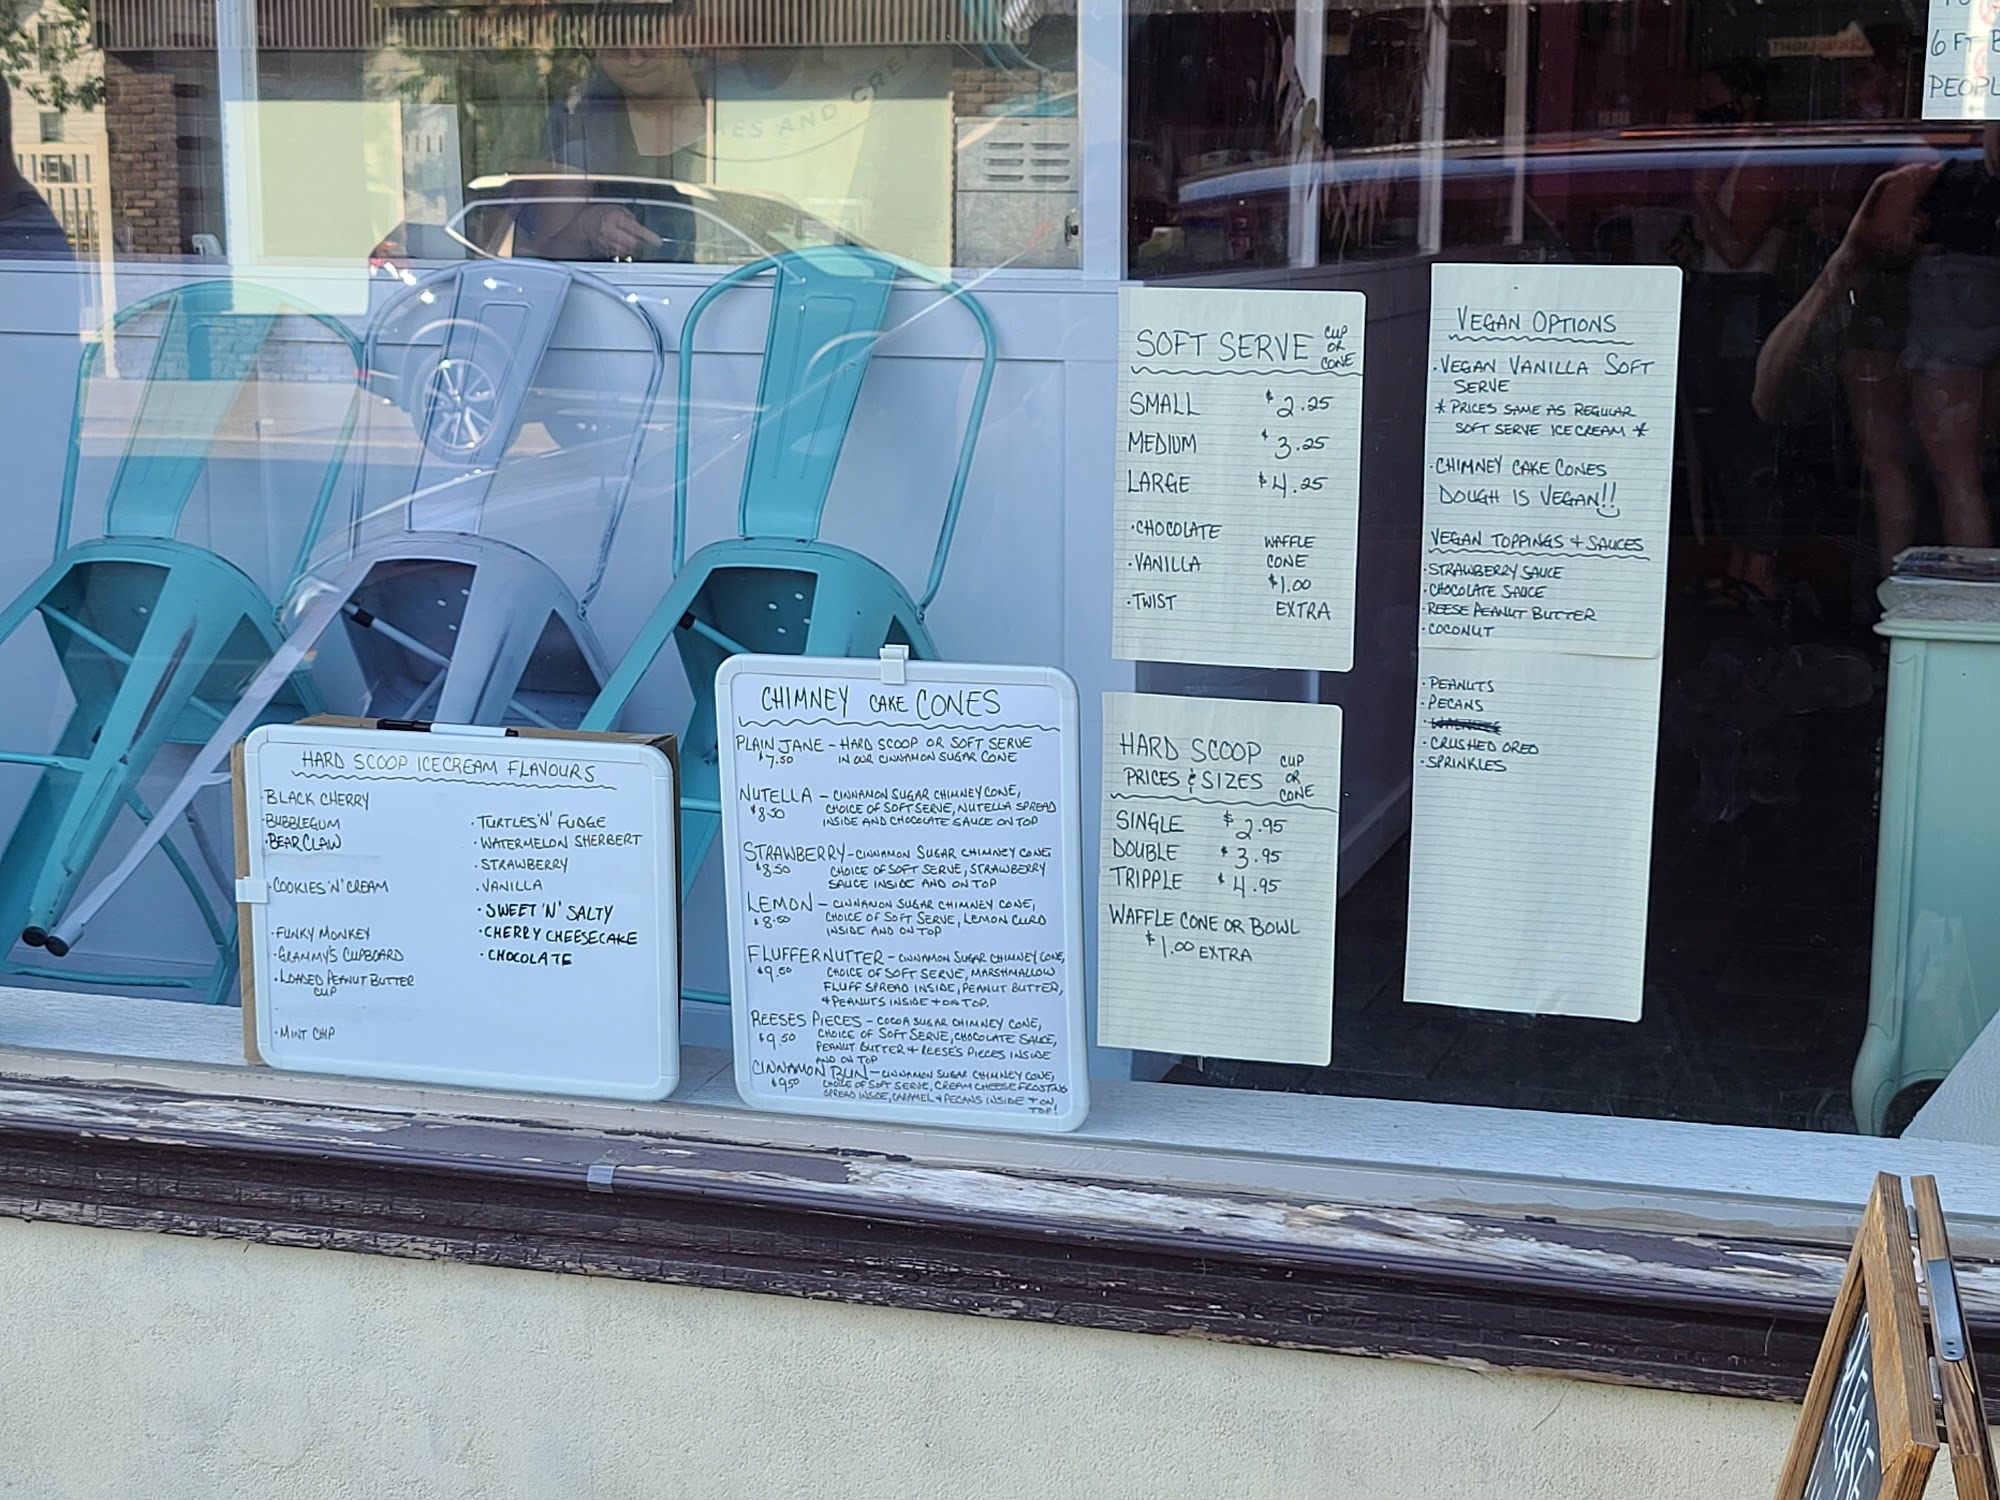 HARD SCOOP ICECREAM FLAVOURS
·BLACK CHERRY
·BUBBLEGUM
·BEAR CLAW
·COOKIES 'N' CREAM
·FUNKY MONKEY
·GRAMMY'S CUPBOARD
·LOADED PEANUT BUTTER
CUP
·MINT CHIP
·TURTLES 'N' FUDGE
·WATERMELON SHERBERT
·STRAWBERRY
·VANILLA
·SWEET 'N' SALTY
·CHERRY CHEESECAKE
·CHOCOLATE
CHIMNEY CAKE CONES
PLAIN JANE - HARD SCOOP OR SOFT SERVE
$7.50 IN OUR CINNAMON SUGAR CONE
NUTELLA - CINNAMON SUGAR CHIMNEY CONE,
$8.50 CHOICE OF SOFT SERVE, NUTELLA SPREAD
INSIDE AND CHOCOLATE SAUCE ON TOP
STRAWBERRY - CINNAMON SUGAR CHIMNEY CONE
$8.50 CHOICE OF SOFT SERVE, STRAWBERRY
SAUCE INSIDE AND ON TOP
LEMON - CINNAMON SUGAR CHIMNEY CONE,
$8.50 CHOICE OF SOFT SERVE, LEMON CURD
INSIDE AND ON TOP
FLUFFERNUTTER - CINNAMON SUGAR CHIMNEY CONE,
$9.50 CHOICE OF SOFT SERVE, MARSHMALLOW
FLUFF SPREAD INSIDE, PEANUT BUTTER,
+ PEANUTS INSIDE + ON TOP.
REESES PIECES - COCOA SUGAR CHIMNEY CONE,
$9.50 CHOICE OF SOFT SERVE, CHOCOLATE SAUCE,
PEANUT BUTTER + REESE'S PIECES INSIDE
AND ON TOP
CINNAMON BUN - CINNAMON SUGAR CHIMNEY CONE,
$9.50 CHOICE OF SOFT SERVE, CREAM CHEESE FROSTING
SPREAD INSIDE, CARAMEL + PECANS INSIDE + ON
TOP!
SOFT SERVE CUP OR CONE
SMALL $2.25
MEDIUM $3.25
LARGE $4.25
·CHOCOLATE
·VANILLA
·TWIST
WAFFLE
CONE
$1.00
EXTRA
HARD SCOOP
PRICES & SIZES
CUP
OR
CONE
SINGLE $2.95
DOUBLE $3.95
TRIPPLE $4.95
WAFFLE CONE OR BOWL
$1.00 EXTRA
VEGAN OPTIONS
·VEGAN VANILLA SOFT
SERVE
* PRICES SAME AS REGULAR
SOFT SERVE ICE CREAM *
·CHIMNEY CAKE CONES
DOUGH IS VEGAN!!
VEGAN TOPPINGS + SAUCES
·STRAWBERRY SAUCE
·CHOCOLATE SAUCE
·REESE PEANUT BUTTER
·COCONUT
·PEANUTS
·PECANS
·CRUSHED OREO
·SPRINKLES
6 FT
AND